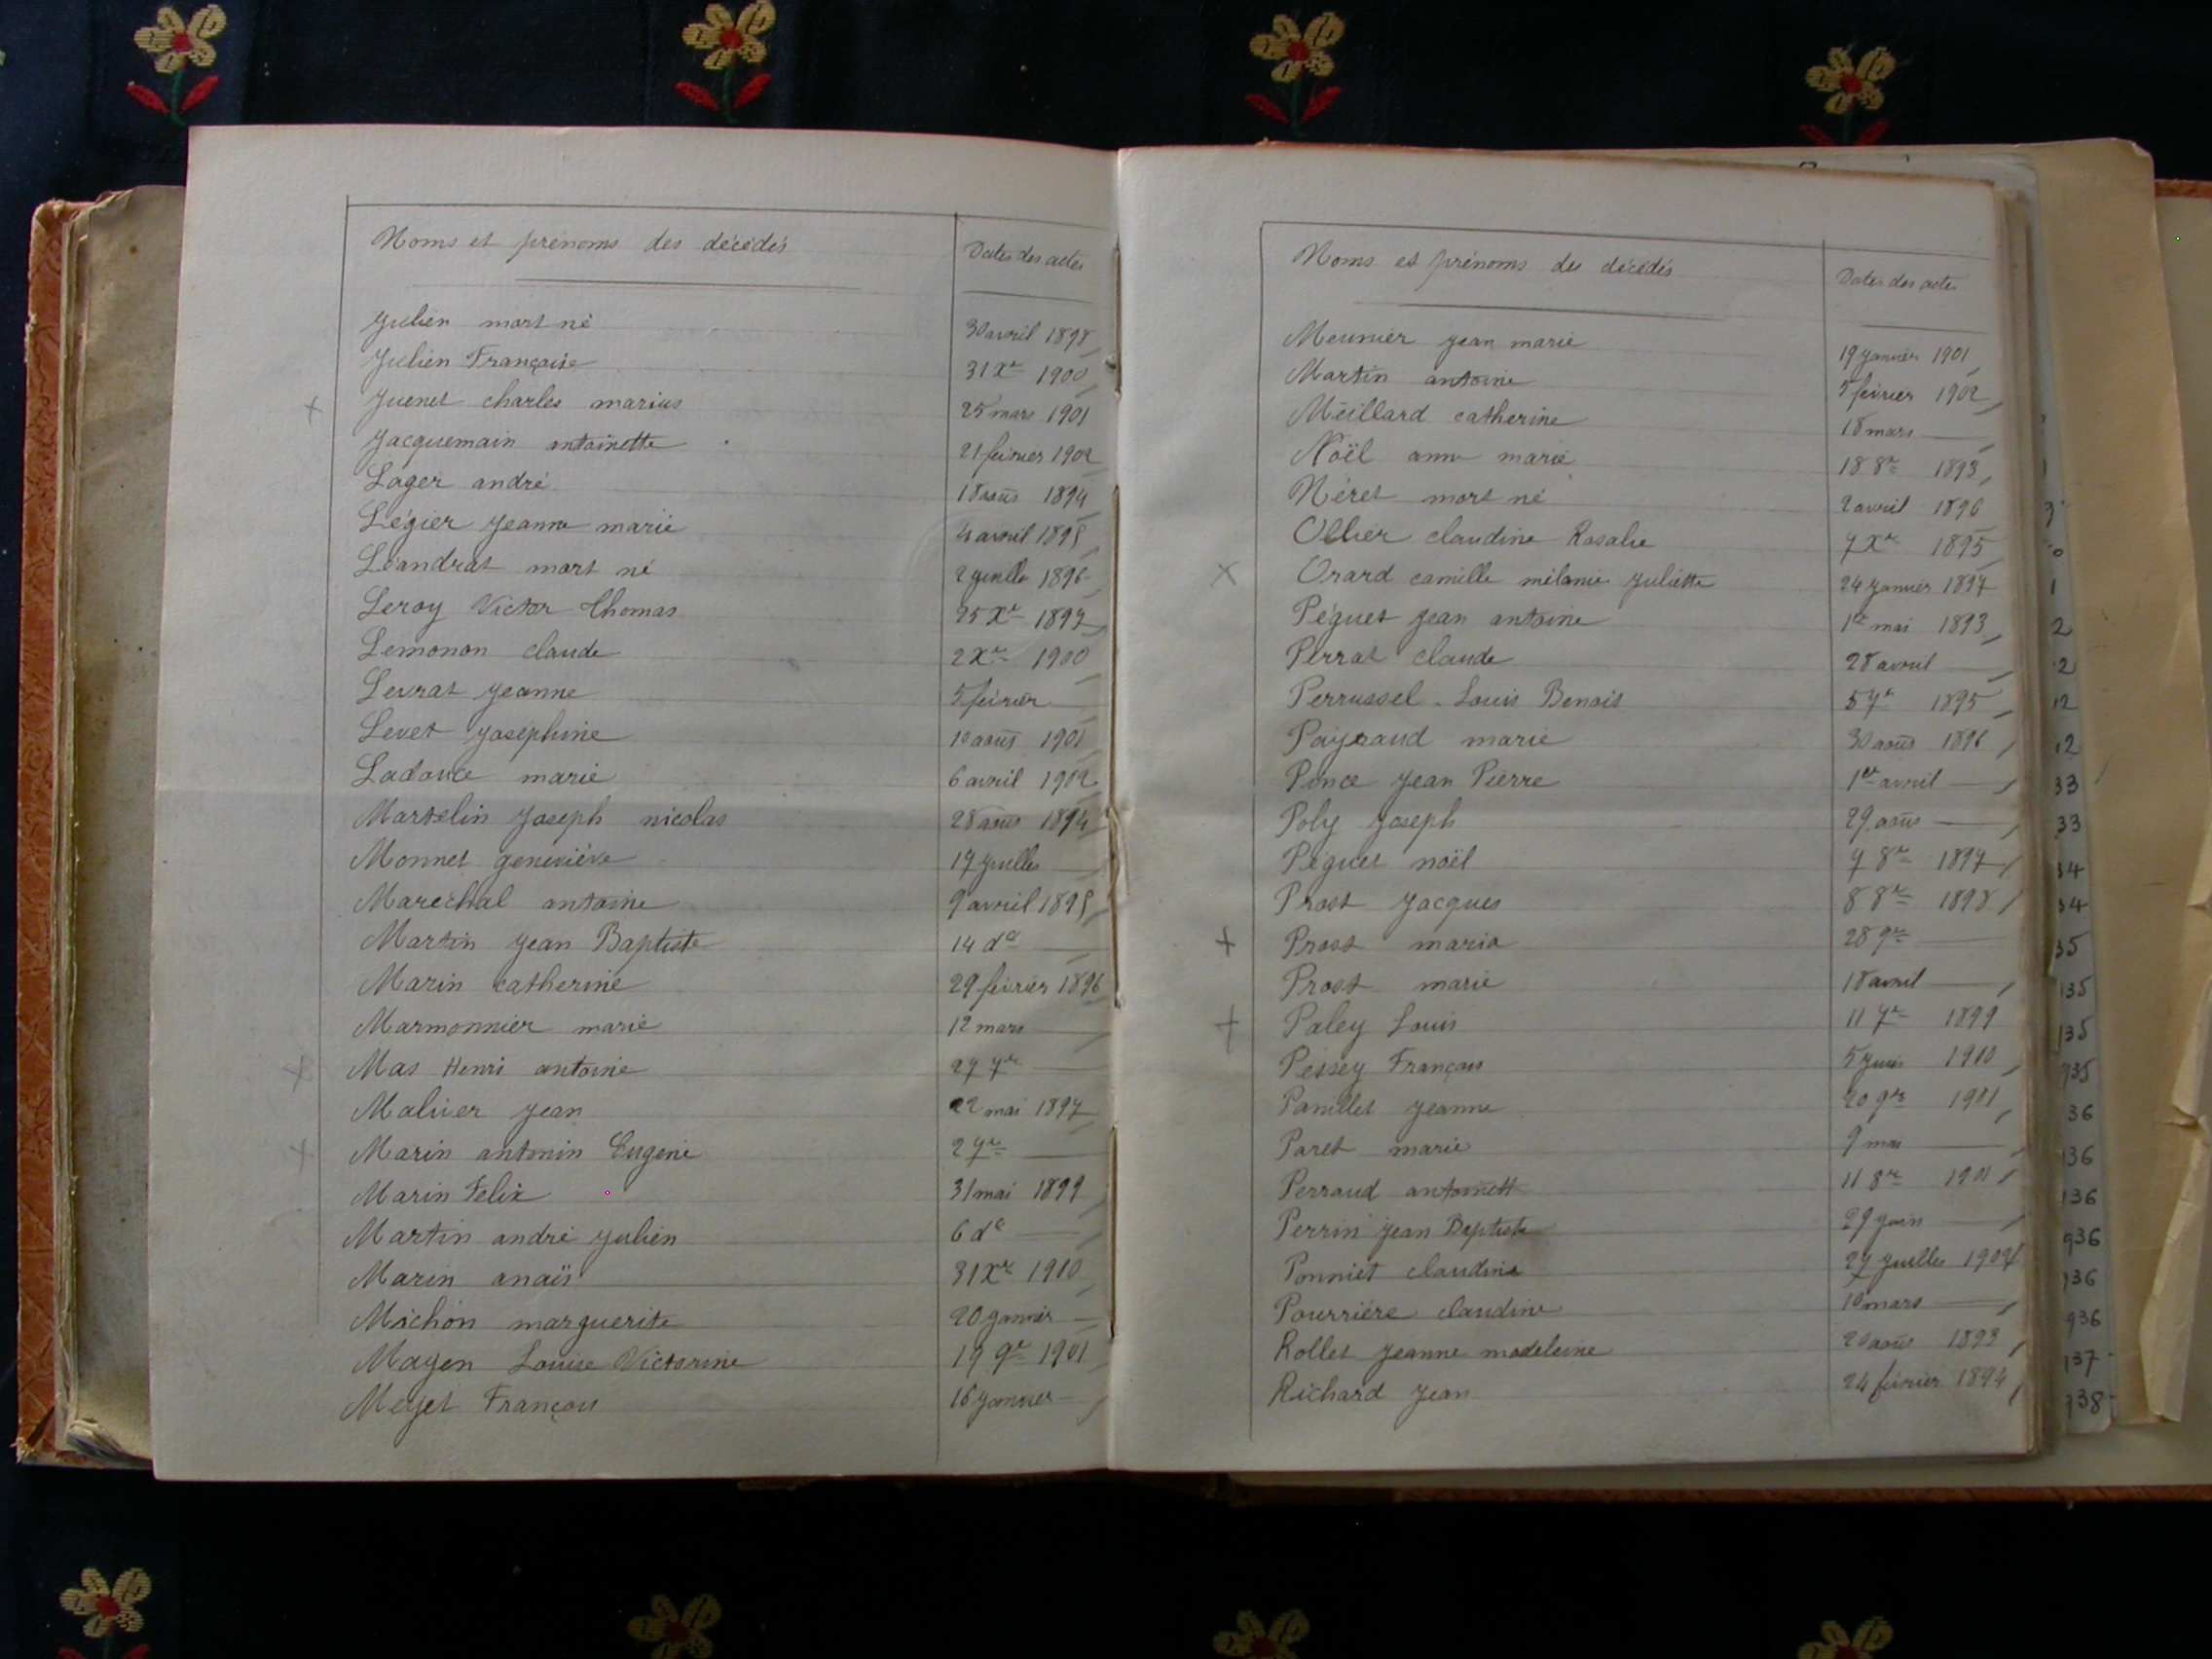 Noms et prénoms des décédés Dates des actes
Julien mort né 30 avril 1898
Julien Françoise 31 Xre 1900
Juenet charles marius 25 mars 1901
Jacquemain antoinette 21 février 1902
Lager andré 18 août 1894
Légier jeanne marie 4 avril 1895
Léandrat mort né 2 juillet 1896
Leroy Victor Thomas 25 Xre 1897
Lemonon claude 2 Xre 1900
Levrat jeanne 5 février —
Levet joséphine 10 août 1901
Ladouce marie 6 avril 1902
Martelin joseph nicolas 28 août 1894
Monnet geneviève 17 juillet —
Maréchal antoine 9 avril 1895
Martin jean Baptiste 14 do —
Marin catherine 29 février 1896
Marmonnier marie 12 mars —
Mas Henri antoine 27 7re —
Malivier jean 22 mai 1897
Marin antonin Eugene 2 7re —
Marin Felix 31 mai 1899
Martin andré julien 6 do —
Marin anaïs 31 Xre 1900
Michon marguerite 20 janvier —
Mayen Louise Victorine 19 9re 1901
Meyet François 16 janvier —
Noms et prénoms des décédés Dates des actes
Meunier jean marie 19 janvier 1901
Martin antoine 5 février 1902
Méillard catherine 18 mars —
Noël anne marie 18 8re 1893
Néret mort né 2 avril 1896
Ollier claudine Rosalie 7 Xre 1895
Orard camille mélanie juliette 24 janvier 1897
Péguet jean antoine 1er mai 1893
Perrat claude 28 avril —
Perrussel Louis Benoit 5 7re 1895
Payraud marie 30 août 1896
Ponce jean Pierre 1er avril —
Poly joseph 29 août —
Péguet noël 7 8re 1897
Prost jacques 8 8re 1898
Prost maria 28 9re —
Prost marie 18 avril —
Paley Louis 11 7re 1899
Pessey François 5 juin 1900
Panillet jeanne 20 9re 1901
Paret marie 9 mai —
Perraud antoinette 11 8re 1901
Perrin jean Baptiste 29 juin —
Ponniet claudine 27 juillet 1902
Pourrière claudine 10 mars —
Rollet jeanne madeleine 20 août 1893
Richard jean 24 février 1894